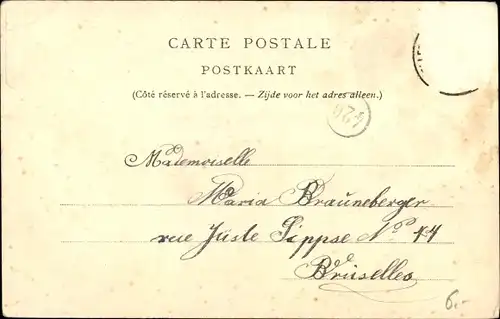 CARTE POSTALE
POSTKAART
(Côté réservé à l'adresse. — Zijde voor het adres alleen.)
424
Mademoiselle
Maria Brauneberger
rue Juste Lippse No 44
Bruxelles
6.-